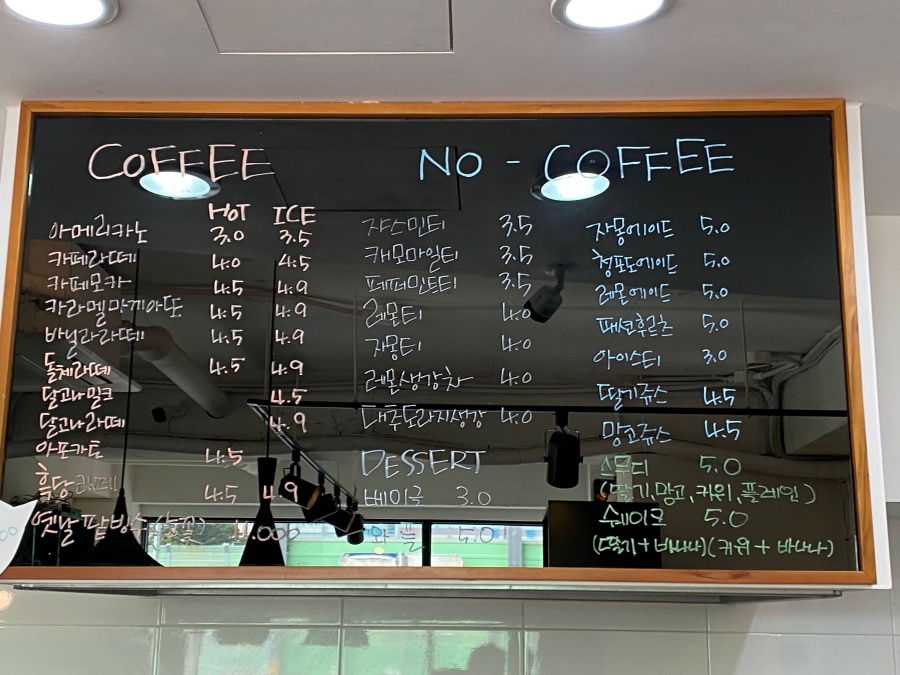 COFFEE
HOT ICE
아메리카노 3.0 3.5
카페라떼 4.0 4.5
카페모카 4.5 4.9
카라멜마끼아또 4.5 4.9
바닐라라떼 4.5 4.9
돌체라떼 4.5 4.9
달고나밀크 4.5
달고나라떼 4.9
아포카토 4.5
흑당라떼 4.5 4.9
옛날 팥빙수(눈꽃) 11.000
NO - COFFEE
쟈스민티 3.5
캐모마일티 3.5
페퍼민트티 3.5
레몬티 4.0
자몽티 4.0
레몬생강차 4.0
대추도라지생강 4.0
DESSERT
베이글 3.0
와플 5.0
자몽에이드 5.0
청포도에이드 5.0
레몬에이드 5.0
패션후르츠 5.0
아이스티 3.0
딸기쥬스 4.5
망고쥬스 4.5
스무디 5.0
(딸기,망고,키위,플레인)
쉐이크 5.0
(딸기+바나나)(키위+바나나)